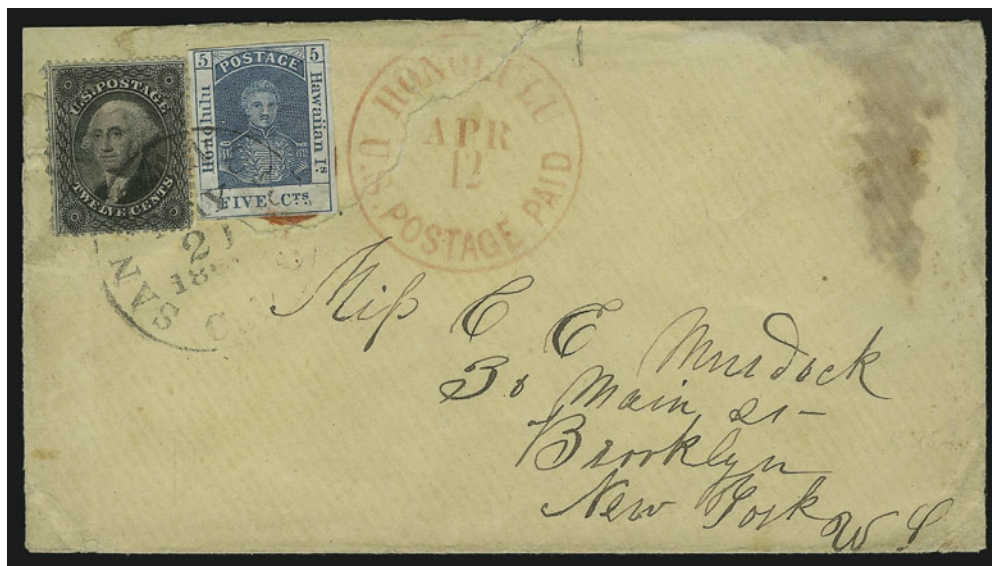 U.S. POSTAGE
TWELVE CENTS
5 POSTAGE 5
Honolulu
Hawaiian Is
FIVE CTS.
HONOLULU
APR
12
U.S. POSTAGE PAID
SAN
21
18
Miss C E Murdock
30 Main St
Brooklyn
New York